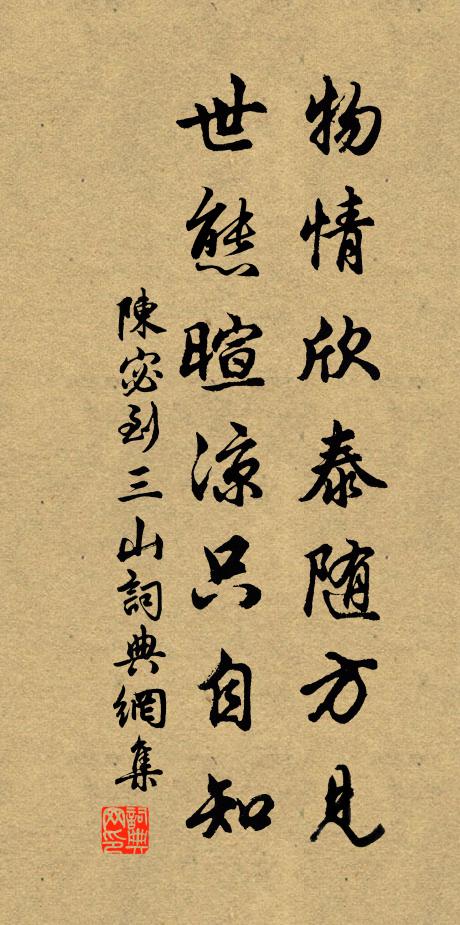 物情欣泰随方見
世態暄涼只自知
陳宓到三山詞典網集
詞典網印